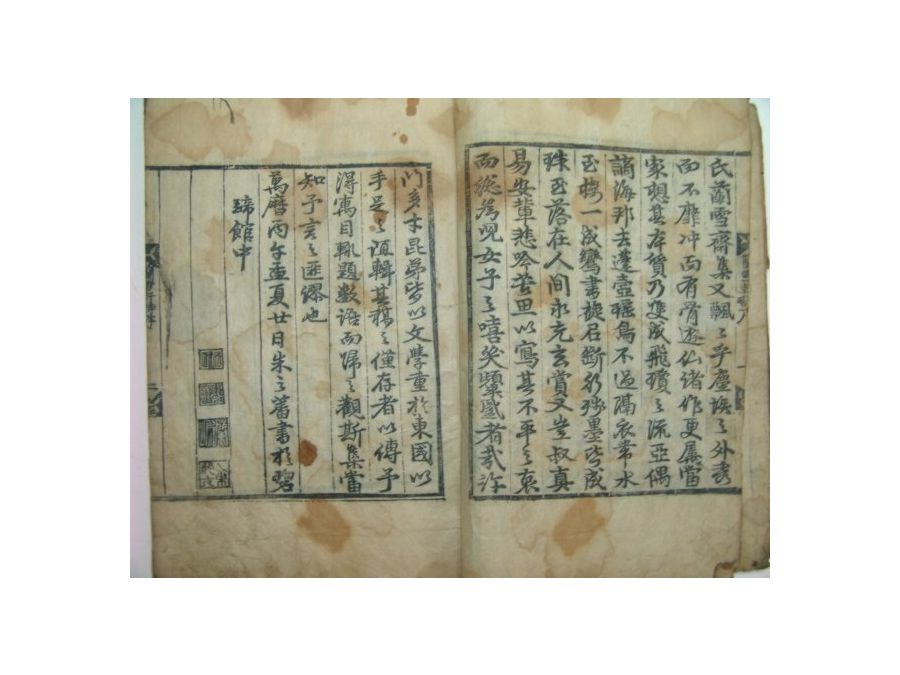 氏蘭雪齋集又飄〻乎塵埃之外秀
而不靡冲而有骨遊仙諸作更屬當
家想其本質乃雙成飛瓊之流亞偶
謫海邦去蓬壺瑤島不過隔衣帶水
玉樓一成鸞書旋召斷行殘墨皆成
珠玉落在人間永充玄賞又豈叔真
易安輩悲吟苦思以寫其不平之衷
而總爲兒女子之嘻笑顰蹙者哉許
門多才昆弟皆以文學重於東國以
手足之誼輯其稿之僅存者以傳予
得寓目輒題數語而歸之觀斯集當
知予言之匪繆也
萬曆丙午孟夏廿日朱之蕃書於碧
蹄館中